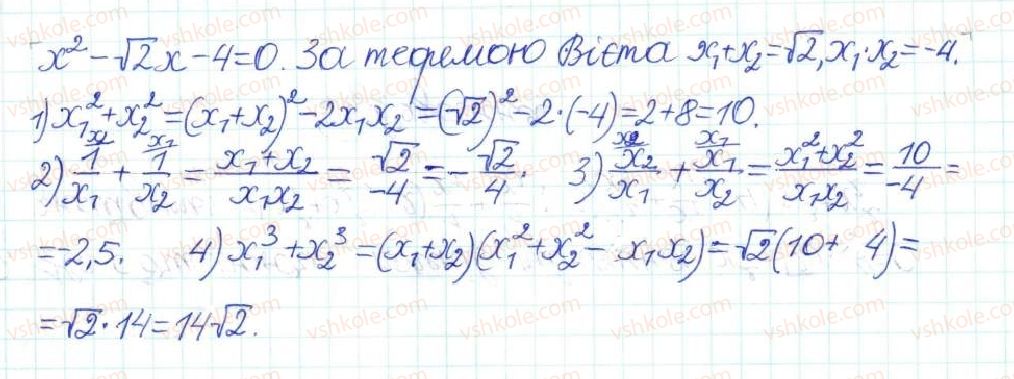 x² - √2x - 4 = 0. За теоремою Вієта x₁ + x₂ = √2, x₁·x₂ = -4.
1) x₁² + x₂² = (x₁ + x₂)² - 2x₁x₂ = (√2)² - 2·(-4) = 2 + 8 = 10.
2) 1/x₁ + 1/x₂ = (x₁ + x₂)/(x₁x₂) = √2/(-4) = -√2/4. 3) x₂/x₁ + x₁/x₂ = (x₁² + x₂²)/(x₁x₂) = 10/(-4) =
= -2,5. 4) x₁³ + x₂³ = (x₁ + x₂)(x₁² + x₂² - x₁x₂) = √2(10 + 4) =
= √2·14 = 14√2.